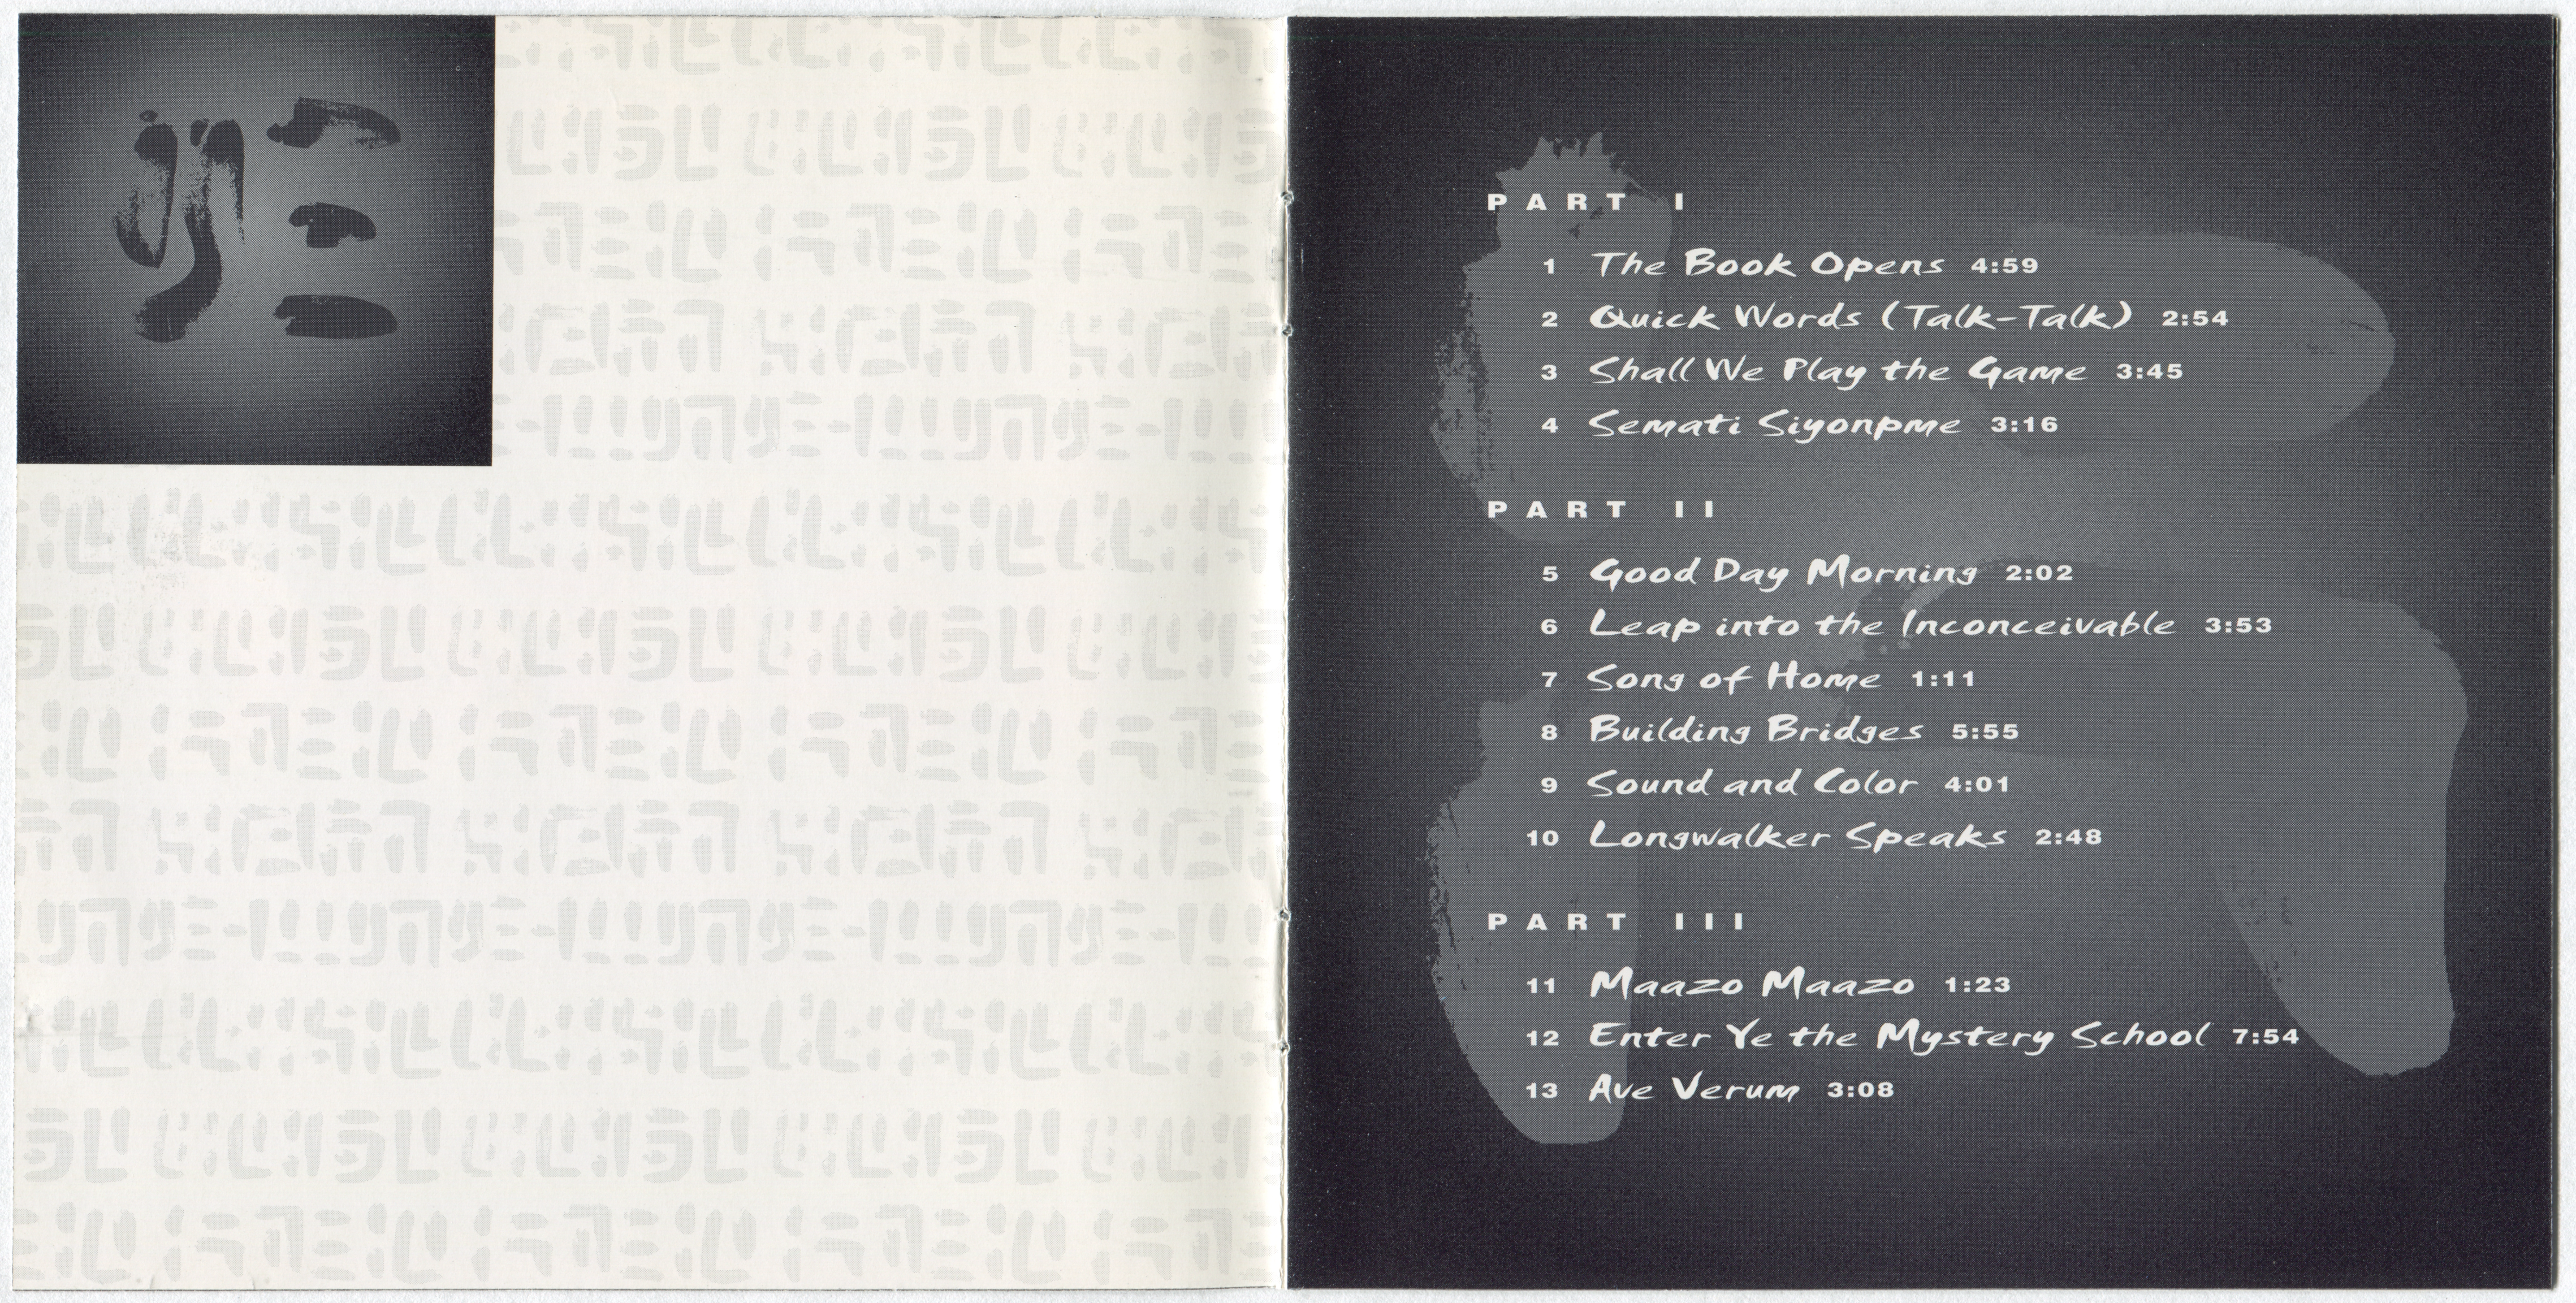 PART I
1 The Book Opens 4:59
2 Quick Words (Talk-Talk) 2:54
3 Shall We Play the Game 3:45
4 Semati Siyonpme 3:16
PART II
5 Good Day Morning 2:02
6 Leap into the Inconceivable 3:53
7 Song of Home 1:11
8 Building Bridges 5:55
9 Sound and Color 4:01
10 Longwalker Speaks 2:48
PART III
11 Maazo Maazo 1:23
12 Enter Ye the Mystery School 7:54
13 Ave Verum 3:08